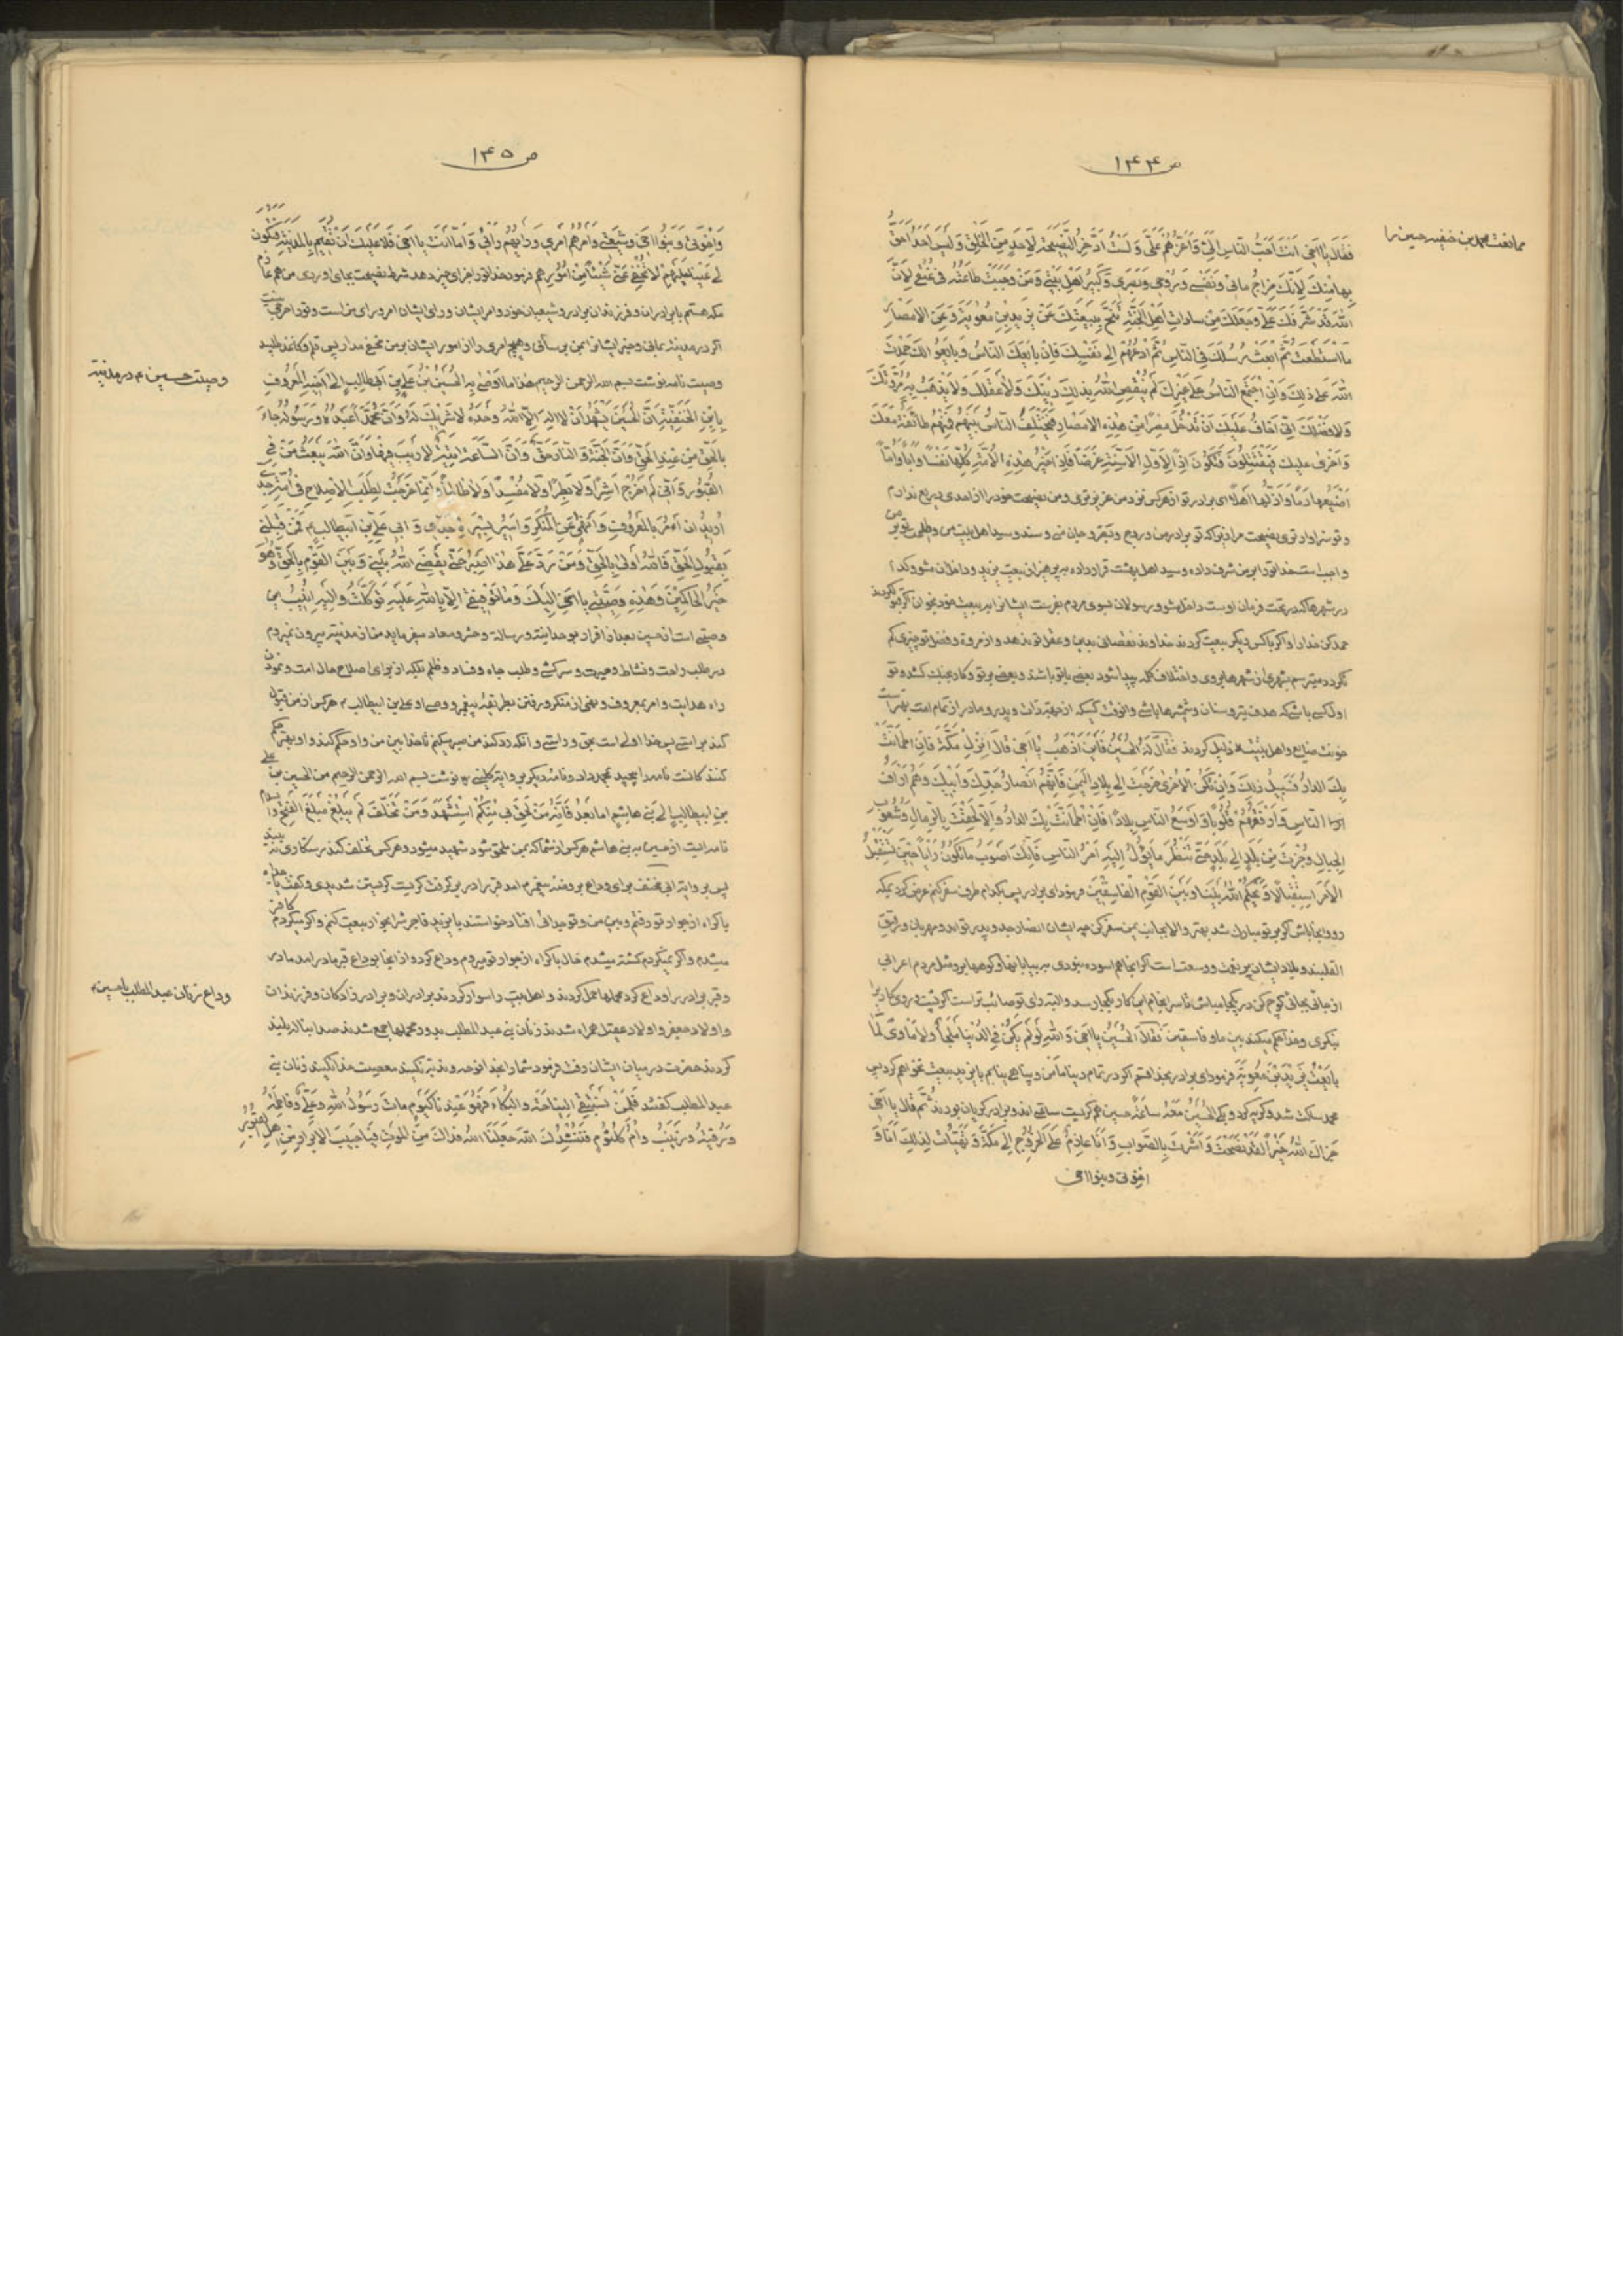 ص ۱۴۴
ممانعت محمد بن حنفیه حسین را
فَقَالَ یَا اَخی اَنْتَ اَحَبُّ النّاسِ اِلَیَّ وَ اَعَزُّهُمْ عَلَیَّ وَ لَسْتُ اَدَّخِرُ النَّصیحَةَ لِاَحَدٍ مِنَ الْخَلْقِ وَ لَیْسَ اَحَدٌ اَحَقَّ
بِها مِنْکَ لِاَنَّکَ مِزاجُ مائی وَ نَفْسی وَ رُوحی وَ بَصَری وَ کَبیرُ اَهْلِ بَیْتی وَ مَنْ وَجَبَتْ طاعَتُهُ فی عُنُقی لِاَنَّ
اللهَ قَدْ شَرَّفَکَ عَلَیَّ وَ جَعَلَکَ مِنْ ساداتِ اَهْلِ الْجَنَّةِ تَنَحَّ بِبَیْعَتِکَ عَنْ یَزیدِ بْنِ مُعٰویَةَ وَ عَنِ الْاَمْصارِ
مَا اسْتَطَعْتَ ثُمَّ ابْعَثْ رُسُلَکَ فِی النّاسِ ثُمَّ ادْعُهُمْ اِلی نَفْسِکَ فَاِنْ بایَعَکَ النّاسُ وَ بایَعُوا لَکَ حَمِدْتَ
اللهَ عَلی ذلِکَ وَ اِنِ اجْتَمَعَ النّاسُ عَلی غَیْرِکَ لَمْ یَنْقُصِ اللهُ بِذلِکَ دینَکَ وَ لا عَقْلَکَ وَ لا یَذْهَبُ بِهِ مُرُوَّتُکَ
وَ لا فَضْلُکَ اِنّی اَخافُ عَلَیْکَ اَنْ تَدْخُلَ مِصْراً مِنْ هٰذِهِ الْاَمْصارِ فَیَخْتَلِفُ النّاسُ بَیْنَهُمْ فَمِنْهُمْ طائِفَةٌ مَعَکَ
وَ اُخْری عَلَیْکَ فَیَقْتَتِلُونَ فَتَکُونُ اِذاً لِاَوَّلِ الْاَسِنَّةِ غَرَضاً فَاِذا خَیْرُ هٰذِهِ الْاُمَّةِ کُلِّها نَفْساً وَ اَباً وَ اُمّاً
اَضْیَعُها دَماً وَ اَذَلُّها اَهْلاً ای برادر تو از هر کس نزد من عزیزتری و من نصیحت خود را از احدی دریغ ندارم
و تو سزاوارتری بنصیحت من زیرا که تو برادر من و روح و بصر و جان منی و سند و سید اهل بیت من و طاعت تو بر من
واجب است خدا تو را بر من شرف داده و سید اهل بهشت قرار داده بپرهیز از بیعت یزید و داخل مشو
در شهرها که در تحت فرمان اوست داخل مشو و رسولان بسوی مردم بفرست ایشانرا به بیعت خود بخوان اگر بتو گرویدند
حمد کن خدا را و اگر با کس دیگر بیعت کردند خداوند نقصانی بدین و عقل تو ندهد و از مروة و فضل تو چیزی کم
نگردد میترسم بشهری از شهرها بروی و اختلاف کلمه پیدا شود بعضی با تو باشند و بعضی بر تو و کار بجنک کشد و تو
اول کسی باشی که هدف تیر و سنان و شمشیرها باشی وانوقت کسیکه از حیث ذات و پدر و مادر از تمام امت بهتر است
خونش ضایع و اهل بیتش ذلیل کردند فَقٰالَ لَهُ الْحُسَیْنُ فَاَیْنَ اَذْهَبُ یا اَخی قالَ اِنْزِلْ مَکَّةَ فَاِنِ اطْمَاَنَّتْ
بِکَ الدّارُ فَسَبیلُ ذلِکَ وَ اِنْ تَکُنِ الْاُخْری خَرَجْتَ اِلی بِلادِ الْیَمَنِ فَاِنَّهُمْ اَنْصارُ جَدِّکَ وَ اَبیکَ وَ هُمْ اَرْاَفُ
النّاسِ وَ اَرَقُّهُمْ قُلُوباً وَ اَوْسَعُ النّاسِ بِلاداً فَاِنِ اطْمَاَنَّتْ بِکَ الدّارُ وَ اِلّا لَحِقْتَ بِالرِّمالِ وَ شُعُوبِ
الْجِبالِ وَ جُزْتَ مِنْ بَلَدٍ اِلی بَلَدٍ حَتّی تَنْظُرَ ما یَؤُلُ اِلَیْهِ اَمْرُ النّاسِ فَاِنَّکَ اَصْوَبُ ما تَکُونُ رَاْیاً حینَ تَسْتَقْبِلُ
الْاَمْرَ اسْتِقْبالاً وَ یَحْکُمُ اللهُ بَیْنَنا وَ بَیْنَ الْقَوْمِ الْفاسِقینَ فرمود ای برادر پس بکدام طرف سفر کنم عرض کرد بمکه
رو و بجا باش اگر بر تو مبارک شد بهتر و الا بجانب یمن سفر کن چه ایشان انصار جد و پدر تواند و مهربان و رقیق
القلبند و بلاد ایشان پر نعمت و وسعت است اگر انجا هم اسوده نبودی به بیابانها و کوهها برو مثل مردم اعرابی
از جائی بجائی کوچ کن در یکجا مباش تا سرانجام اینکار بکجا رسد و البته رای تو صائب تر است
میکری و خدا حکم میکند بین ما و فاسقین فَقالَ الْحُسَیْنُ یا اَخی وَ اللهِ لَوْ لَمْ یَکُنْ فِی الدُّنْیا مَلْجَأٌ وَ لا مَاْویً لَمٰا
بایَعْتُ یَزیدَ بْنَ مُعٰویَةَ فرمود ای برادر بخدا قسم اگر در تمام دنیا مامن و پناهی نیابم با یزید بیعت نخواهم کرد پس
محمد ساکت شد و گریه کرد وَ بَکَی الْحُسَیْنُ مَعَهُ ساعَةً حسین هم گریست ساعتی اندو برادر گریان بودند ثُمَّ قالَ یا اَخی
جَزاکَ اللهُ خَیْراً لَقَدْ نَصَحْتَ وَ اَشَرْتَ بِالصَّوابِ وَ اَنَا عازِمٌ عَلَی الْخُرُوجِ اِلی مَکَّةَ وَ تَهَیَّأْتُ لِذلِکَ اَنَا وَ
اخوتی و بنو اخی
ص ۱۴۵
وَ اِخْوَتی وَ بَنُو اَخی وَ شیعَتی وَ اَمْرُهُمْ اَمْری وَ رَاْیُهُمْ رَاْیی وَ اَمّا اَنْتَ یا اَخی فَلا عَلَیْکَ اَنْ تُقیمَ بِالْمَدینَةِ فَتَکُونَ
لی عَیْناً عَلَیْهِمْ لا تُخْفی عَنّی شَیْئاً مِنْ اُمُورِهِمْ فرمود خدا تو را جزای خیر دهد شرط نصیحت بجای اوردی من هم عازم
مکه هستم با برادران و فرزندان برادر و شیعیان خود و امر ایشان و رای ایشان امر و رای من است و تو را
اگر در مدینه بمانی و خبر ایشانرا بمن برسانی و هیچ امری را از امور ایشان بر من مخفی مدار پس قلم و کاغذ طلبید
وصیت حسین ع در مدینه
وصیت نامه نوشت بسم الله الرحمن الرحیم هٰذا ما اَوْصی بِهِ الْحُسَیْنُ بْنُ عَلِیِّ بْنِ اَبی طالِبٍ اِلی اَخیهِ الْمَعْرُوفِ
بِابْنِ الْحَنَفِیَّةِ اَنَّ الْحُسَیْنَ یَشْهَدُ اَنْ لا اِلهَ اِلَّا اللهُ وَحْدَهُ لا شَریکَ لَهُ وَ اَنَّ مُحَمَّداً عَبْدُهُ وَ رَسُولُهُ جاءَ
بِالْحَقِّ مِنْ عِنْدِ الْحَقِّ وَ اَنَّ الْجَنَّةَ وَ النّارَ حَقٌّ وَ اَنَّ السّاعَةَ اتِیَةٌ لا رَیْبَ فیها وَ اَنَّ اللهَ یَبْعَثُ مَنْ فِی
الْقُبُورِ وَ اَنّی لَمْ اَخْرُجْ اَشِراً وَ لا بَطِراً وَ لا مُفْسِداً وَ لا ظالِماً وَ اِنَّما خَرَجْتُ لِطَلَبِ الْاِصْلاحِ فی اُمَّةِ جَدّی
اُریدُ اَنْ امُرَ بِالْمَعْرُوفِ وَ اَنْهی عَنِ الْمُنْکَرِ وَ اَسیرُ بِسیرَةِ جَدّی وَ اَبی عَلِیِّ بْنِ ابیطالب ع فَمَنْ قَبِلَنی
بِقَبُولِ الْحَقِّ فَاللهُ اَوْلی بِالْحَقِّ وَ مَنْ رَدَّ عَلَیَّ هٰذا اَصْبِرُ حَتّی یَقْضِیَ اللهُ بَیْنی وَ بَیْنَ الْقَوْمِ بِالْحَقِّ وَ هُوَ
خَیْرُ الْحاکِمینَ وَ هٰذِهِ وَصِیَّتی یا اَخی اِلَیْکَ وَ ما تَوْفیقی اِلّا بِاللهِ عَلَیْهِ تَوَکَّلْتُ وَ اِلَیْهِ اُنیبُ این
وصیتی است از حسین بعد از اقرار بوحدانیت و رسالت و حشر و معاد میفرماید من از مدینه بیرون نمیروم
در طلب راحت و نشاط و سرکشی و طلب جاه و فساد و ظلم بلکه از برای اصلاح حال امت و نمودن
راه هدایت و امر بمعروف و نهی از منکر و رفتن بطریقه پیغمبر و وصی او علی بن ابیطالب ع هر کس از من قبول
کند براستی پس خدا اولی است بحق و راستی و انکه رد کند من صبر میکنم تا خدا بین من و او حکم کند و او بهتر حکم
کننده کانست نامه را پیچید بمحمد داد و نامه دیگر بروایت کلینی ره نوشت بسم الله الرحمن الرحیم من الحسین بن علی
بن ابیطالب اِلی بَنی هاشِمٍ اما بَعْدُ فَاِنَّهُ مَنْ لَحِقَ بی مِنْکُمْ اسْتُشْهِدَ وَ مَنْ تَخَلَّفَ لَمْ یَبْلُغْ مَبْلَغَ الْفَتْحِ والسلام
نامه ایست از حسین به بنی هاشم هر کس از شما که بمن ملحق شود شهید میشود و هر کس تخلف کند رستکاری نه بیند
پس بروایت ابی مخنف برای وداع بروضه پیغمبر ص امد قبر را در بر گرفت گریست گریستن شدیدی و گفت
باکراه از جوار تو رفتم و بین من و تو جدائی افتاد خواستند با یزید فاجر شرابخوار بیعت کنم و اگر میکردم کافر
میشدم و اگر نمیکردم کشته میشدم حال باکراه از جوار تو میروم وداع کرد و از انجا بوداع قبر مادر امد مادر
وداع زنان عبدالمطلب با حسین ع
و قبر برادر را وداع کرد محملها حمل کردند و اهل بیت را سوار کردند برادران و برادر زادکان و فرزندان
و اولاد جعفر و اولاد عقیل همراه شدند زنان بنی عبد المطلب بدور محملها جمع شدند صدا بناله بلند
کردند حضرت در میان ایشان رفت فرمود شما را بخدا نوحه و ندبه نکنید معصیت خدا نکنید زنان بنی
عبد المطلب گفتند فَلِمَنْ نَسْتَبْقِی النِّیاحَةَ وَ الْبُکاءَ فَهُوَ عِنْدَنا کَیَوْمٍ ماتَ رَسُولُ اللهِ وَ عَلِیٌّ وَ فاطِمَةُ
وَ رُقَیَّةُ وَ زَیْنَبُ وَ اُمُّ کُلْثُومٍ فَنَنْشُدُکَ اللهَ جَعَلَنَا اللهُ فِداکَ مِنَ الْمَوْتِ فَیا حَبیبَ الْاَبْرارِ مِنْ اَهْلِ الْقُبُورِ